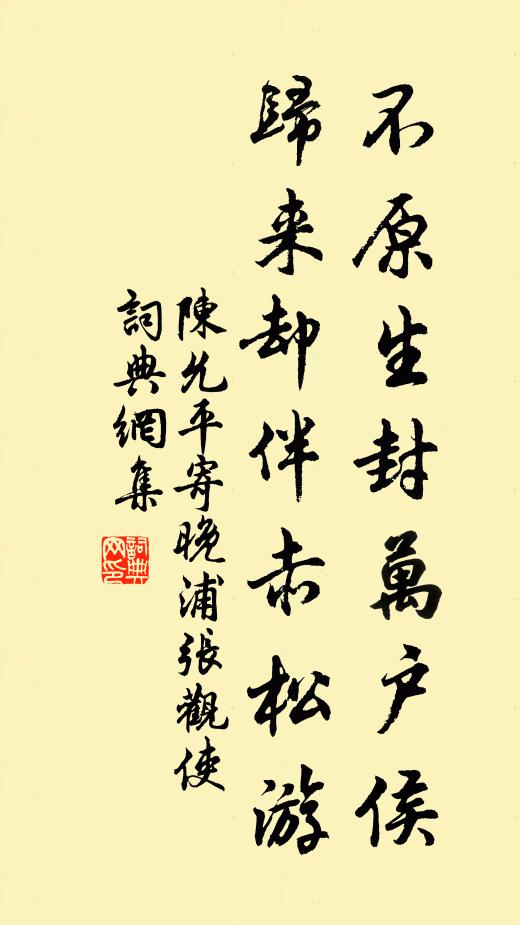 不原生封萬户侯
歸来却伴赤松游
陳允平寄晚浦張觀使
詞典網集
詞典网印